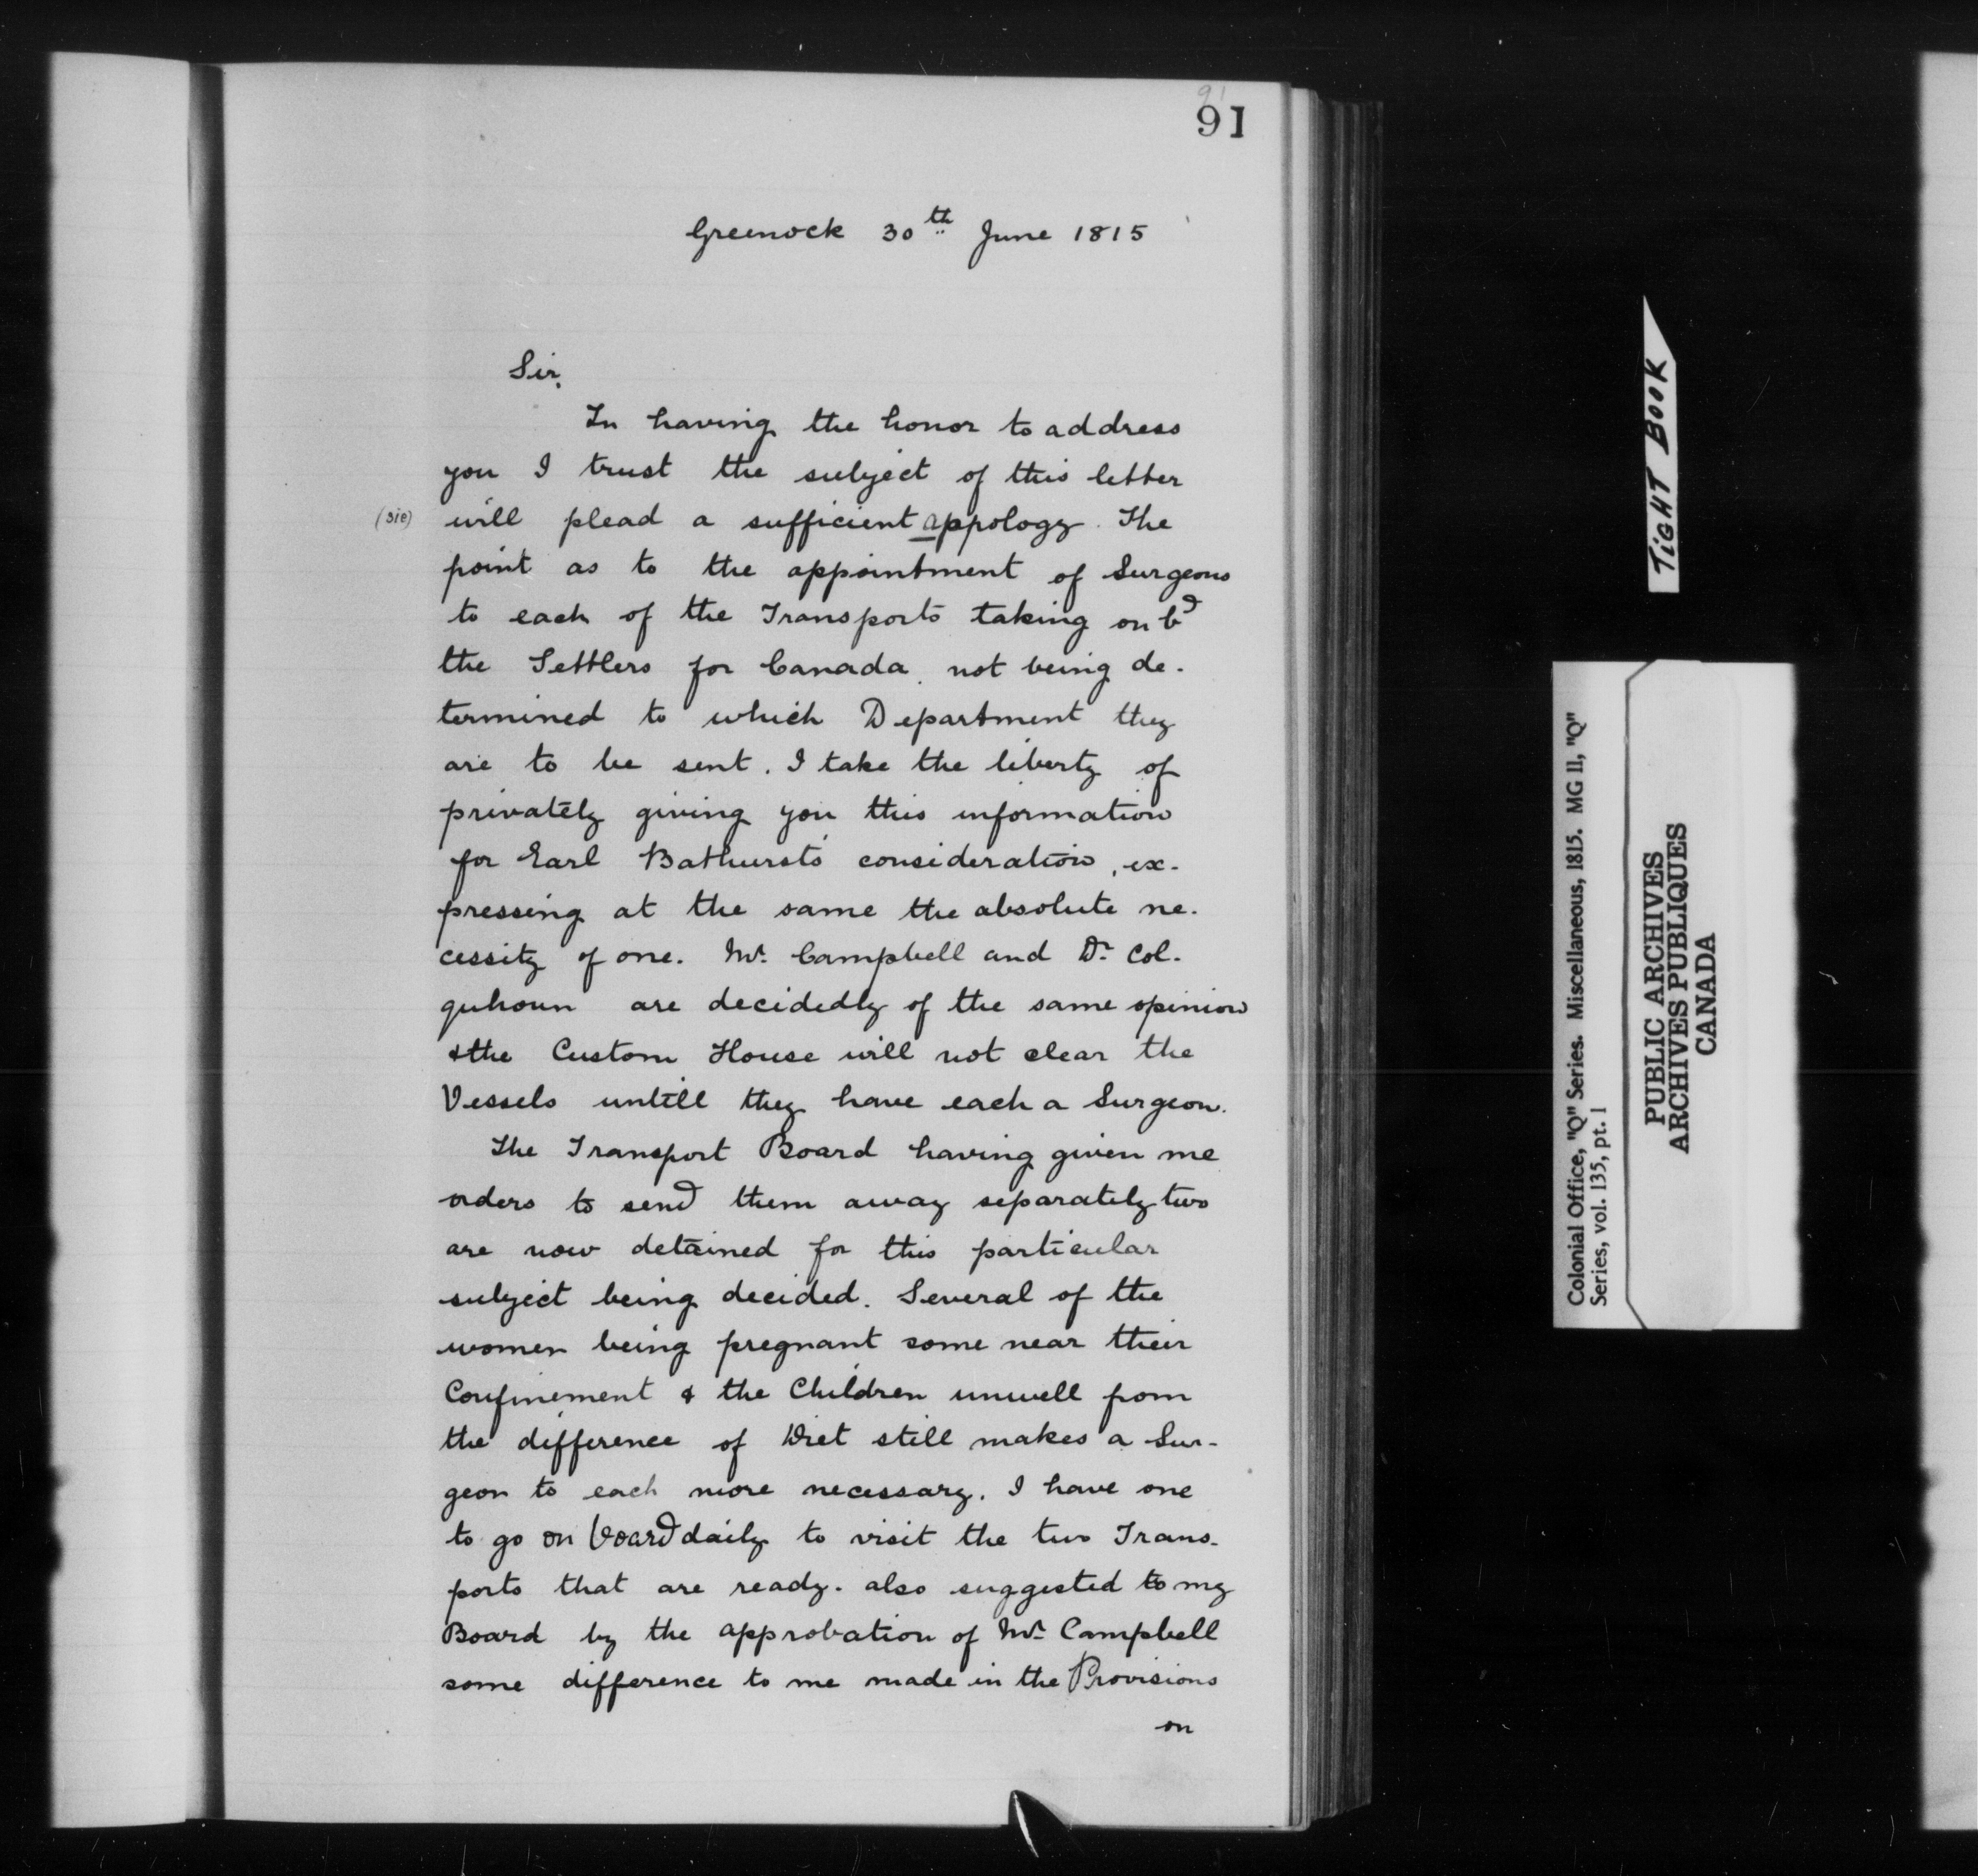 91
91
Greenock 30th June 1815
Sir,
In having the honor to address
you I trust the subject of this letter
(sic) will plead a sufficient appology. The
point as to the appointment of Surgeons
to each of the Transports taking on bd
the Settlers for Canada, not being de-
termined to which Department they
are to be sent. I take the liberty of
privately giving you this information
for Earl Bathurst's consideration, ex-
pressing at the same the absolute ne-
cessity of one. Mr. Campbell and Dr. Col-
quhoun are decidedly of the same opinion
& the Custom House will not clear the
Vessels untill they have each a Surgeon.
The Transport Board having given me
orders to send them away separately two
are now detained for this particular
subject being decided. Several of the
women being pregnant some near their
Confinement & the Children unwell from
the difference of Diet still makes a Sur-
geon to each more necessary. I have one
to go on board daily to visit the two Trans-
ports that are ready. also suggested to my
Board by the approbation of Mr. Campbell
some difference to me made in the Provisions
on
TIGHT BOOK
Colonial Office, "Q" Series. Miscellaneous, 1815. MG 11, "Q"
Series, vol. 135, pt. 1
PUBLIC ARCHIVES
ARCHIVES PUBLIQUES
CANADA